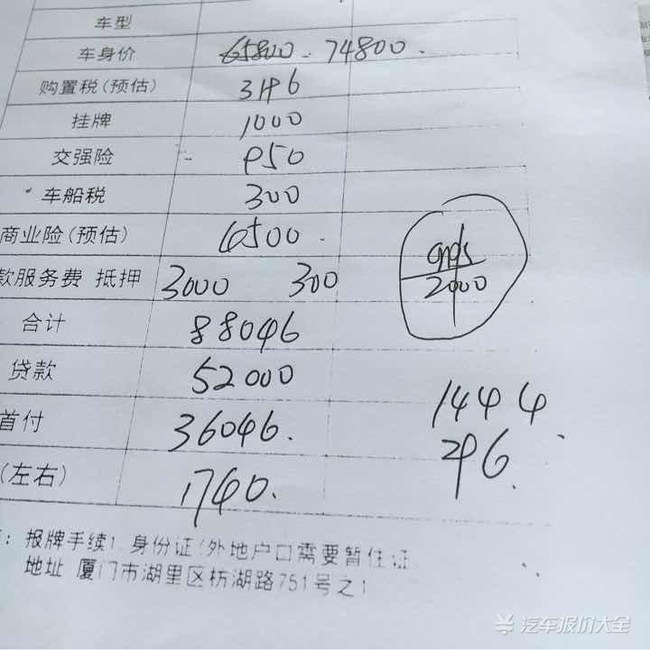 车型
车身价 65800. 74800.
购置税(预估) 3196
挂牌 1000
交强险 950
车船税 300
商业险(预估) 6500
款服务费 抵押 3000 300
gps
2000
合计 88046
贷款 52000
1444
首付 36046.
296.
(左右) 1740.
: 报牌手续1. 身份证(外地户口需要暂住证
地址 厦门市湖里区枋湖路751号之1
汽车报价大全